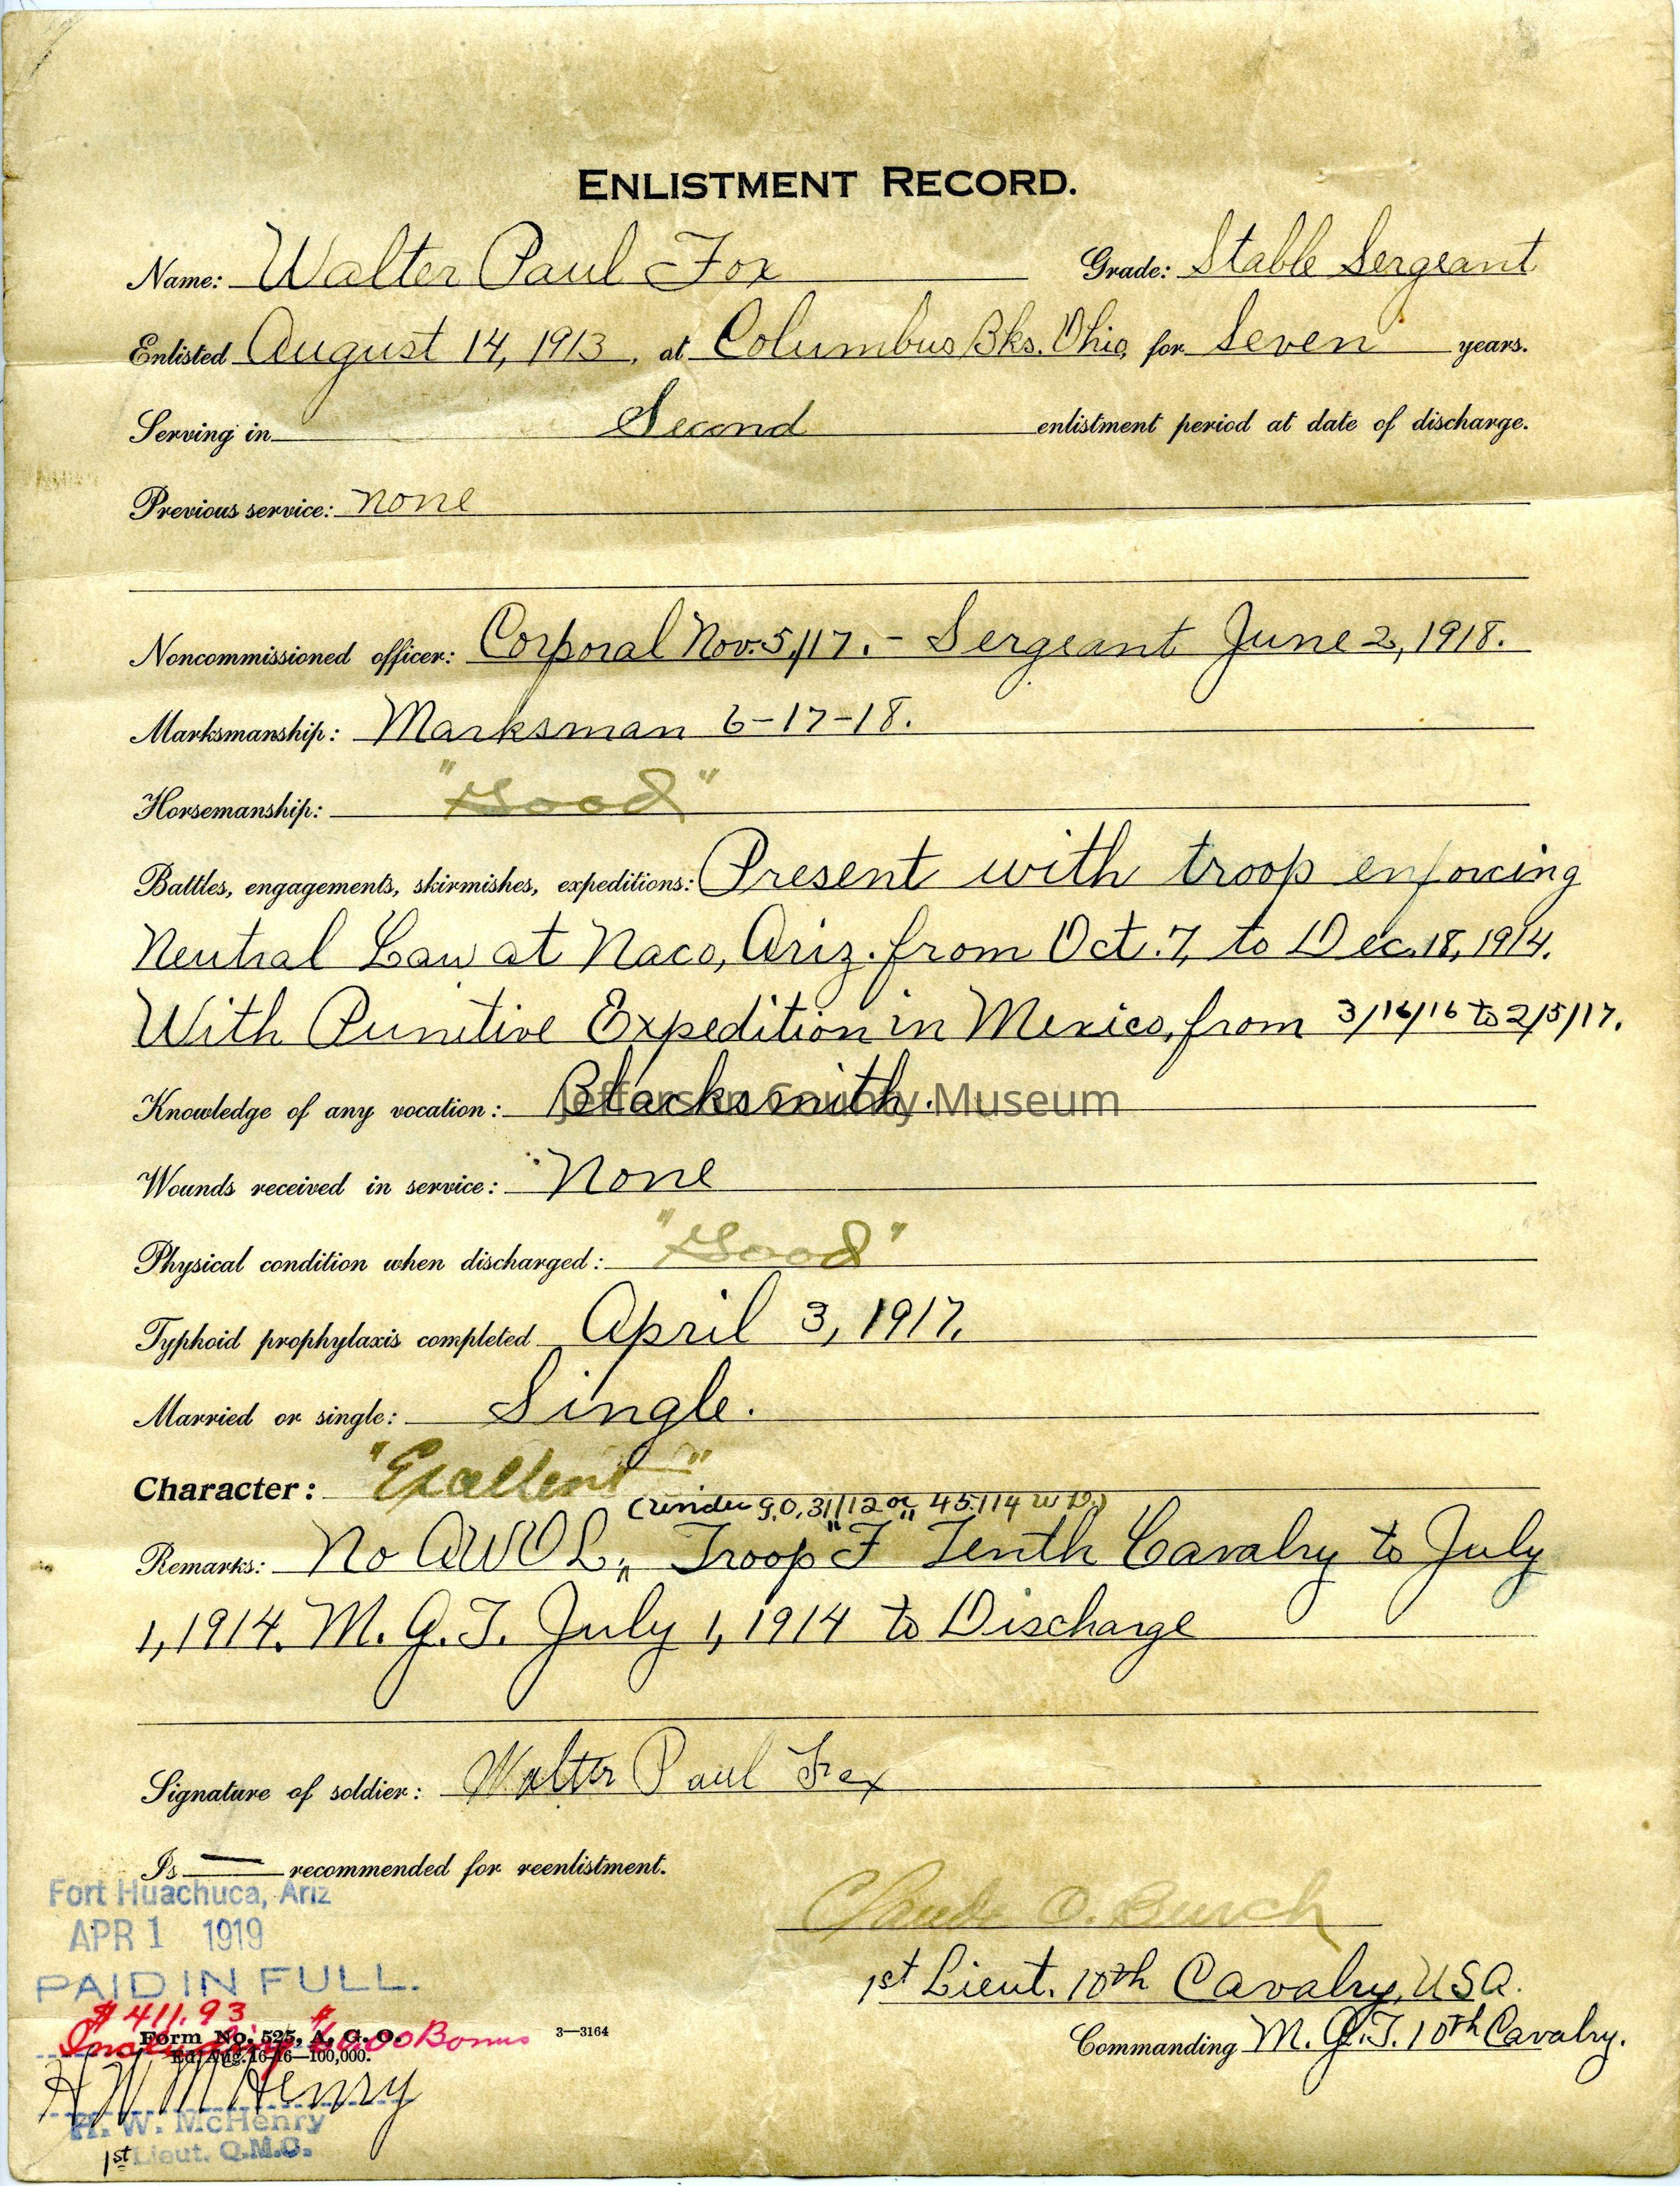 ENLISTMENT RECORD.
Name: Walter Paul Fox Grade: Stable Sergeant
Enlisted August 14, 1913, at Columbus Bks. Ohio, for Seven years.
Serving in Second enlistment period at date of discharge.
Previous service: none
Noncommissioned officer: Corporal Nov. 5, 17. - Sergeant June 2, 1918.
Marksmanship: Marksman 6-17-18.
Horsemanship: "Good"
Battles, engagements, skirmishes, expeditions: Present with troop enforcing
Neutral Law at Naco, Ariz. from Oct. 7, to Dec. 18, 1914.
With Punitive Expedition in Mexico, from 3/16/16 to 2/5/17.
Knowledge of any vocation: Blacksmith.
Jefferson County Museum
Wounds received in service: None
Physical condition when discharged: "Good"
Typhoid prophylaxis completed April 3, 1917.
Married or single: Single.
Character: "Excellent"
(under G.O. 31/12 or 45/14 W.D.)
Remarks: No AWOL, Troop "F" Tenth Cavalry to July
1, 1914. M. G. T. July 1, 1914 to Discharge
Signature of soldier: Walter Paul Fox
Is — recommended for reenlistment.
Fort Huachuca, Ariz
APR 1 1919
PAID IN FULL.
$411.93
Including $60.00 Bonus
Form No. 525, A. G. O.
Ed. Aug. 16-16—100,000.
3—3164
H W McHenry
H. W. McHenry
1st Lieut. Q.M.C.
Claude O. Burch
1st Lieut. 10th Cavalry, USA.
Commanding M. G. T. 10th Cavalry.